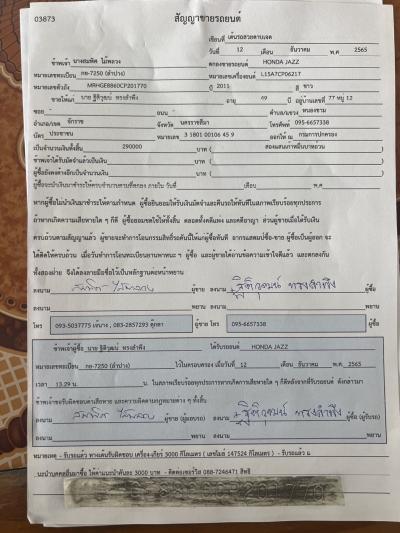 03873 สัญญาขายรถยนต์
เขียนที่ เต้นรถสวยตาบเจต
วันที่ 12 เดือน ธันวาคม พ.ศ 2565
ข้าพเจ้า นางสมพิศ ไม้พลวง ตกลงขายรถยนต์ HONDA JAZZ
หมายเลขทะเบียน กย-7250 (ลำปาง) หมายเลขเครื่องยนต์ L15A7CP06217
หมายเลขตัวถัง MRHGE8860CP201770 ปี 2011 สี ขาว
ขายให้แก่ นาย ฐิติวุฒน์ ทรงสำพึง อายุ 49 ปี อยู่บ้านเลขที่ 77 หมู่ 12
ซอย - ถนน - ตำบล/แขวง หนองขาม
อำเภอ/เขต จักราช จังหวัด นครราชสีมา โทรศัพท์ 095-6657338
บัตร ประชาชน หมายเลข 3 1801 00106 45 9 ออกให้ ณ กรมการปกครอง
เป็นจำนวนเงินทั้งสิ้น 290000 บาท ( สองแสนเก้าหมื่นบาทถ้วน
ข้าพเจ้าได้รับมัดจำแล้วเป็นเงิน บาท (
ผู้ซื้อยังคงค้างอีกเป็นจำนวนเงิน บาท (
ผู้ซื้อจะนำเงินมาชำระให้ครบจำนวนตามที่ตกลง ภายใน วันที่ เดือน พ.ศ.
หากผู้ซื้อไม่นำเงินมาชำระให้ตามกำหนด ผู้ซื้อยินยอมให้ริบเงินมัดจำและคืนรถให้ทันทีในสภาพเรียบร้อยทุกประการ
ถ้าหากเกิดความเสียหายใด ๆ ก็ดี ผู้ซื้อยอมชดใช้ให้ทั้งสิ้น ตลอดทั้งคดีแพ่ง และคดีอาญา ส่วนผู้ขายเมื่อได้รับเงิน
ครบถ้วนตามสัญญาแล้ว ผู้ขายจะทำการโอนกรรมสิทธิ์รถคันนี้ให้แก่ผู้ซื้อทันที
ได้คิดให้ครบถ้วน เมื่อวันทำการโอนทะเบียนยานพาหนะ ฯ ผู้ซื้อ และผู้ขายได้อ่านข้อความเข้าใจดีแล้ว และตกลงกัน
ทั้งสองฝ่าย จึงได้ลงลายมือชื่อไว้เป็นหลักฐานต่อหน้าพยาน
ลงนาม ผู้ขาย ลงนาม ฐิติวุฒน์ ทรงสำพึง ผู้ซื้อ
ลงนาม พยาน ลงนาม พยาน
โทร 093-5037775 083-2857293 ผู้ขาย โทร 095-6657338 ผู้ซื้อ
ข้าพเจ้าผู้ซื้อ นาย ฐิติวุฒน์ ทรงสำพึง ได้รับรถยนต์ HONDA JAZZ
หมายเลขทะเบียน กย-7250 (ลำปาง) ไว้ในครอบครอง เมื่อวันที่ 12 เดือน ธันวาคม พ.ศ. 2565
เวลา 13.29 น. น. ในสภาพเรียบร้อยทุกประการ
ลงนาม ผู้ขาย (ผู้มอบรถ) ลงนาม ฐิติวุฒน์ ทรงสำพึง ผู้ซื้อ (ผู้รับรถ)
ลงนาม พยาน ลงนาม พยาน
หมายเหตุ - รับรถแล้ว ทางเต้นรับผิดชอบ เครื่อง-เกียร์ 3000 กิโลเมตร ( เลขไมล์ 147524 กิโลเมตร ) - รับรถแล้ว
แนะนำบุคคลอื่นมาซื้อ ให้ค่าแนะนำคันละ 3000 บาท - ติดต่อเซอร์วิส 088-7246471 สิทธิ